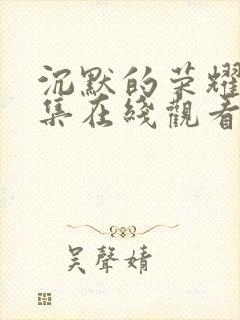 沉默的荣耀
集在綫觀看
吴聲婧